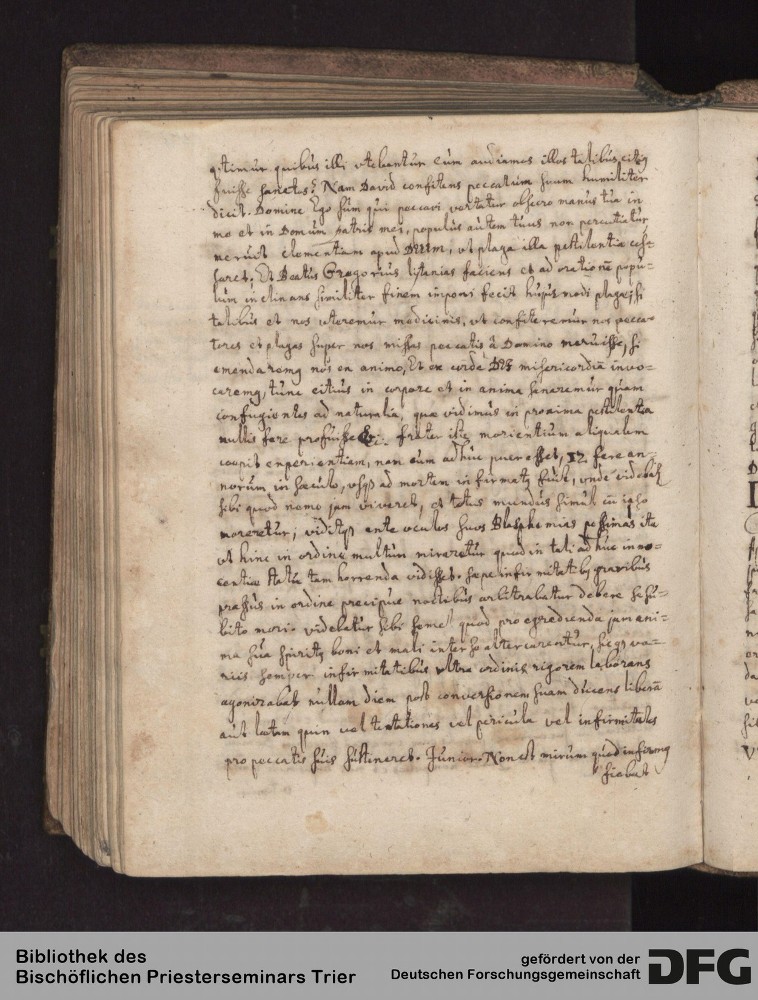 timur quibus illi utebantur cum audiamus illos talibus
fuisse sanctos? Nam David confitens peccatum suum humiliter
dicit. Domine Ego sum qui peccavi vertatur obsecro manus tua in
me et in Domum patris mei, populus autem tuus non percutiatur
meruit clementiam apud Deum, ut plaga illa pestilentiæ ces-
saret, Et Beatus Gregorius litanias faciens et ad orationē popu-
lum inclinans similiter finem imponi fecit hujusmodi plagæ; si
talibus et nos uteremur medicinis, ut confiteremur nos pecca-
tores et plagas super nos missas peccatis â Domino meruisse, si
emendaremq nos ex animo, Et ex corde Dei misericordiā invo-
caremq, tunc citius in corpore et in anima sanaremur quam
confugientes ad naturalia, quæ vidimus in proxima pestilentia
nullis fere profuisse &c. frater iste morientium aliqualem
coepit experientiam, nam cum adhuc puer esset, 12 fere an-
norum in sæculo, usq ad mortem infirmatq fuit, unde videbat
sibi quod nemo jam viveret, et totus mundus simul cū ipso
moreretur; viditq ante oculos suos Blasphemias pessimas ita
ut hinc in ordine multum miraretur quod in tali adhuc inno-
centiæ statu tam horrenda vidisset. sæpe infirmitatibq gravibus
pressus in ordine præcipue noctibus arbitrabatur debere se su-
bito mori. videbatur sibi semel quod pro egredienda jam ani-
ma sua spiritq boni et mali inter se altercarentur, sicq va-
riis semper infirmitatibus ultra ordinis rigorem laborans
agonizabat nullam diem post conversionem suam ducens liberā
aut lætam quin vel tentationes vel pericula vel infirmitates
pro peccatis suis sustineret. Junior. Non est mirum quod infirmq
fiebat
Bibliothek des
Bischöflichen Priesterseminars Trier
gefördert von der
Deutschen Forschungsgemeinschaft
DFG